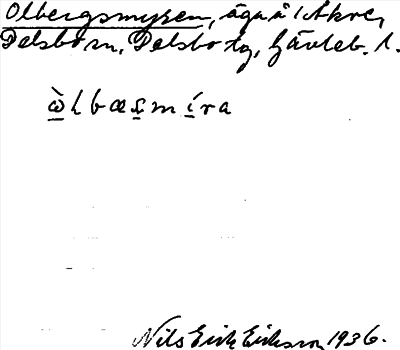 Olbergsmyren, äga å 1 Åkre,
Delsbo sn, Delsbo tg, Gävleb. l.
ὼlbæʂmíra
Nils Erik Eriksson 1936.